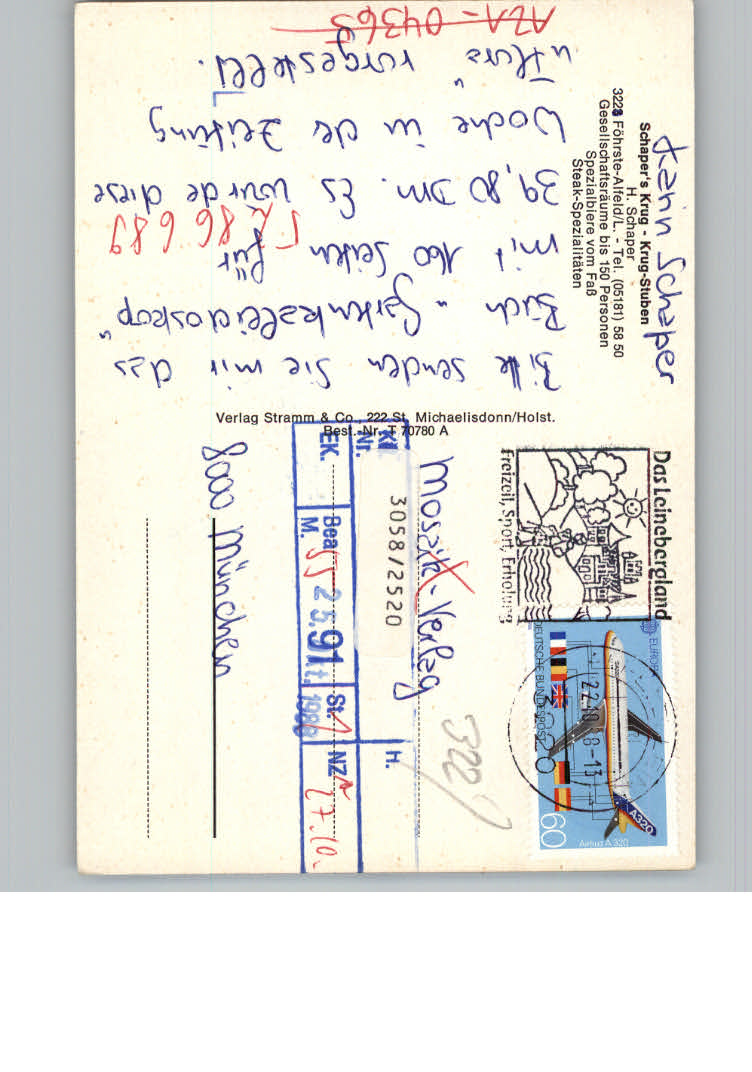 Schaper's Krug - Krug-Stuben
H. Schaper
3223 Föhrste-Alfeld/L. - Tel. (05181) 58 50
Gesellschaftsräume bis 150 Personen
Spezialbiere vom Faß
Steak-Spezialitäten
Karin Schaper
Bitte senden Sie mir das
Buch "Gartenkaleidoskop"
mit 160 Seiten für
39,80 DM. Es wurde diese
Woche in der Zeitung
"Harz" vorgestellt.
86 689
AZA-04365
Verlag Stramm & Co., 222 St. Michaelisdonn/Holst.
Best.-Nr. T 70780 A
Das Leinebergland
Freizeit, Sport, Erholung
EUROPA
DEUTSCHE BUNDESPOST
60
A320
Airbus A 320
22.10.88-13
3220
322
Mosaik-Verlag
8000 München
3058/2520
Kl
Nr.
H.
EK.
Bea
M.
25.
91
t.
1988
St.
NZ
27.10.